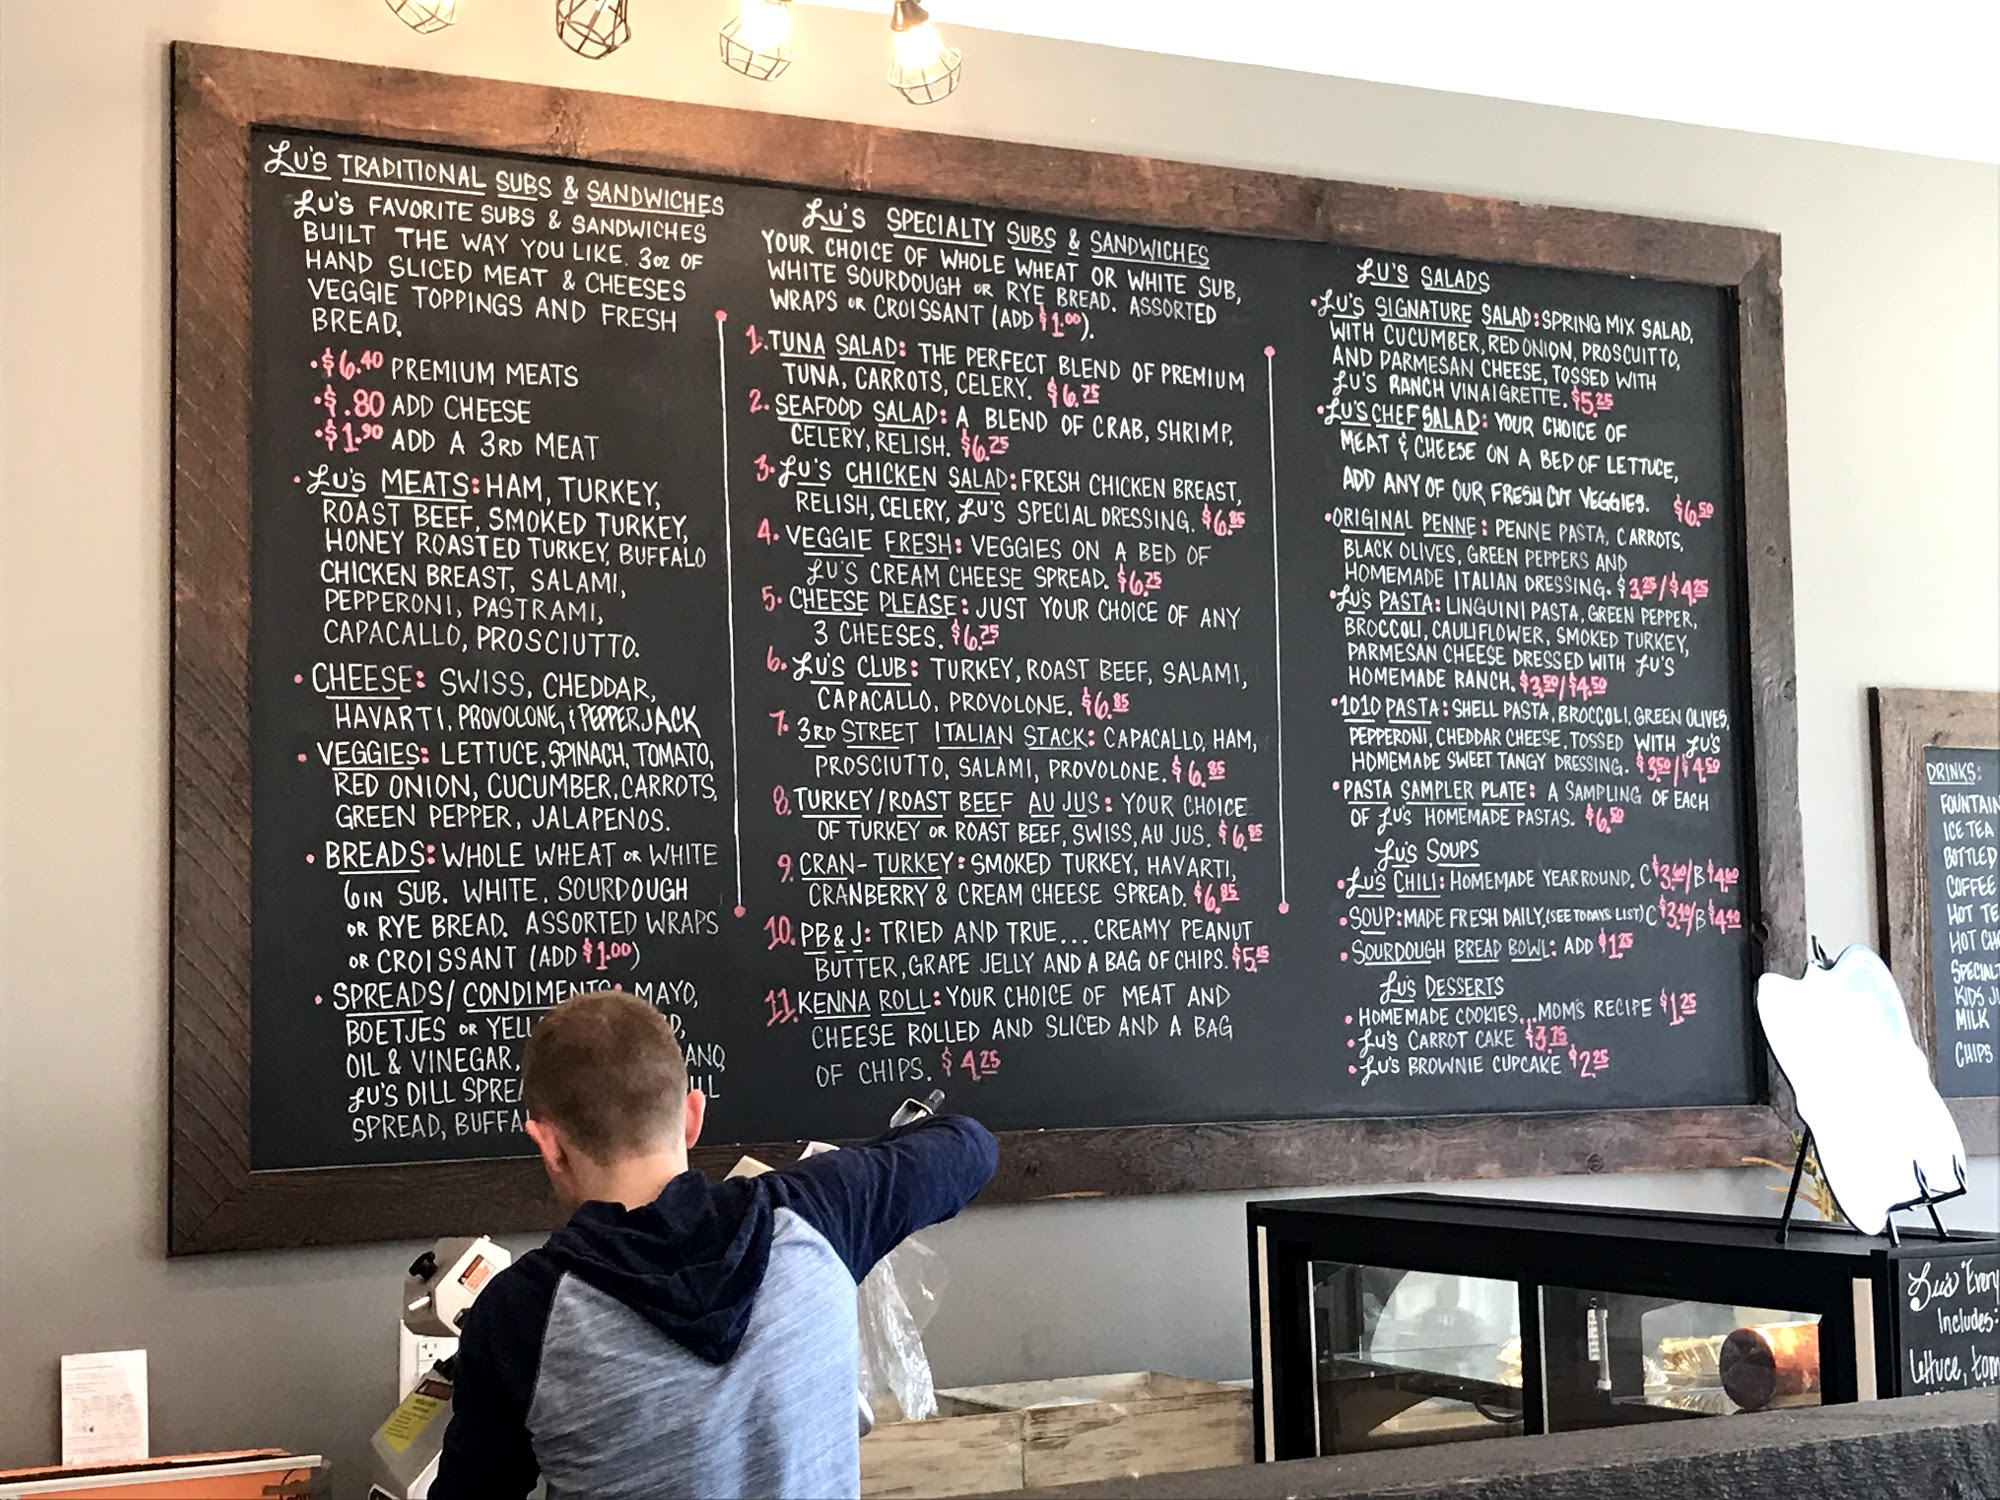 Lu's TRADITIONAL SUBS & SANDWICHES
Lu's FAVORITE SUBS & SANDWICHES
BUILT THE WAY YOU LIKE. 3oz OF
HAND SLICED MEAT & CHEESES
VEGGIE TOPPINGS AND FRESH
BREAD.
• $6.40 PREMIUM MEATS
• $.80 ADD CHEESE
• $1.90 ADD A 3RD MEAT
• Lu's MEATS: HAM, TURKEY,
ROAST BEEF, SMOKED TURKEY,
HONEY ROASTED TURKEY, BUFFALO
CHICKEN BREAST, SALAMI,
PEPPERONI, PASTRAMI,
CAPACALLO, PROSCIUTTO.
• CHEESE: SWISS, CHEDDAR,
HAVARTI, PROVOLONE, & PEPPERJACK
• VEGGIES: LETTUCE, SPINACH, TOMATO,
RED ONION, CUCUMBER, CARROTS,
GREEN PEPPER, JALAPENOS.
• BREADS: WHOLE WHEAT OR WHITE
6IN SUB. WHITE, SOURDOUGH
OR RYE BREAD. ASSORTED WRAPS
OR CROISSANT (ADD $1.00)
• SPREADS/CONDIMENTS: MAYO,
BOETJES OR
OIL & VINEGAR,
Lu's DILL
SPREAD,
Lu's SPECIALTY SUBS & SANDWICHES
YOUR CHOICE OF WHOLE WHEAT OR WHITE SUB,
WHITE SOURDOUGH OR RYE BREAD. ASSORTED
WRAPS OR CROISSANT (ADD $1.00).
1. TUNA SALAD: THE PERFECT BLEND OF PREMIUM
TUNA, CARROTS, CELERY. $6.75
2. SEAFOOD SALAD: A BLEND OF CRAB, SHRIMP,
CELERY, RELISH. $6.75
3. Lu's CHICKEN SALAD: FRESH CHICKEN BREAST,
RELISH, CELERY, Lu's SPECIAL DRESSING. $6.85
4. VEGGIE FRESH: VEGGIES ON A BED OF
Lu's CREAM CHEESE SPREAD. $6.25
5. CHEESE PLEASE: JUST YOUR CHOICE OF ANY
3 CHEESES. $6.75
6. Lu's CLUB: TURKEY, ROAST BEEF, SALAMI,
CAPACALLO, PROVOLONE. $6.85
7. 3RD STREET ITALIAN STACK: CAPACALLO, HAM,
PROSCIUTTO, SALAMI, PROVOLONE. $6.85
8. TURKEY/ROAST BEEF AU JUS: YOUR CHOICE
OF TURKEY OR ROAST BEEF, SWISS, AU JUS. $6.85
9. CRAN-TURKEY: SMOKED TURKEY, HAVARTI,
CRANBERRY & CREAM CHEESE SPREAD. $6.85
10. PB&J: TRIED AND TRUE... CREAMY PEANUT
BUTTER, GRAPE JELLY AND A BAG OF CHIPS.
11. KENNA ROLL: YOUR CHOICE OF MEAT AND
CHEESE ROLLED AND SLICED AND A BAG
OF CHIPS. $4.25
Lu's SALADS
• Lu's SIGNATURE SALAD: SPRING MIX SALAD,
WITH CUCUMBER, RED ONION, PROSCUITTO,
AND PARMESAN CHEESE, TOSSED WITH
Lu's RANCH VINAIGRETTE. $5.25
• Lu's CHEF SALAD: YOUR CHOICE OF
MEAT & CHEESE ON A BED OF LETTUCE,
ADD ANY OF OUR FRESH CUT VEGGIES. $6.50
• ORIGINAL PENNE: PENNE PASTA, CARROTS,
BLACK OLIVES, GREEN PEPPERS AND
HOMEMADE ITALIAN DRESSING. $3.25/$4.25
• Lu's PASTA: LINGUINI PASTA, GREEN PEPPER,
BROCCOLI, CAULIFLOWER, SMOKED TURKEY,
PARMESAN CHEESE DRESSED WITH Lu's
HOMEMADE RANCH. $3.50/$4.50
• 1010 PASTA: SHELL PASTA, BROCCOLI, GREEN OLIVES,
PEPPERONI, CHEDDAR CHEESE. TOSSED WITH Lu's
HOMEMADE SWEET TANGY DRESSING. $3.50/$4.50
• PASTA SAMPLER PLATE: A SAMPLING OF EACH
OF Lu's HOMEMADE PASTAS. $6.50
Lu's SOUPS
• Lu's CHILI: HOMEMADE YEAR ROUND. C $3.60/B $4.60
• SOUP: MADE FRESH DAILY, (SEE TODAYS LIST) C $3.40/B $4.40
• SOURDOUGH BREAD BOWL: ADD $1.25
Lu's DESSERTS
• HOMEMADE COOKIES... MOM'S RECIPE $1.25
• Lu's CARROT CAKE $3.75
• Lu's BROWNIE CUPCAKE $2.25
DRINKS:
FOUNTAIN
ICE TEA
BOTTLED
COFFEE
HOT
HOT
KIDS
MILK
CHIPS
Lu's
Includes:
lettuce,